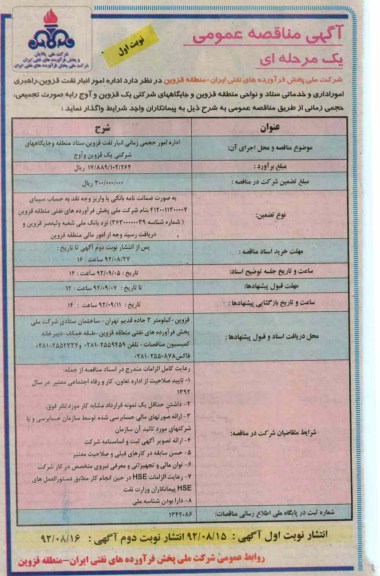 شرکت ملی پخش فرآورده های نفتی ایران
آگهی مناقصه عمومی
یک مرحله ای
نوبت اول
شرکت ملی پخش فرآورده های نفتی ایران-منطقه قزوین در نظر دارد اداره امور انبار نفت قزوین،راهبری
اموراداری و خدماتی ستاد و نواحی منطقه قزوین و جایگاههای شرکتی یک قزوین و آوج رابه صورت تجمیعی،
حجمی زمانی از طریق مناقصه عمومی به شرح ذیل به پیمانکاران واجد شرایط واگذار نماید :
عنوان
شرح
موضوع مناقصه و محل اجرای آن:
اداره امور حجمی زمانی انبار نفت قزوین،ستاد منطقه وجایگاههای
شرکتی یک قزوین وآوج
مبلغ برآورد :
۱۷/۸۸۹/۱۰۴/۲۶۴ ریال
مبلغ تضمین شرکت در مناقصه :
ریال
نوع تضمین:
به صورت ضمانت نامه بانکی یا واریز وجه نقد به حساب سیبای
بنام شرکت ملی پخش فرآورده های نفتی منطقه قزوین
نزد بانک ملی شعبه ولیعصر قزوین و
دریافت رسید وجه از امور مالی منطقه قزوین
مهلت خرید اسناد مناقصه :
پس از انتشار نوبت دوم آگهی تا تاریخ :
۹۲/۰۸/۲۷ ساعت : ۱۶
ساعت و تاریخ جلسه توضیح اسناد:
تاریخ : ۹۲/۰۹/۰۵ ساعت : ۱۴
مهلت قبول پیشنهادها:
تا تاریخ : ۹۲/۰۹/۰۷ ساعت : ۱۲
ساعت و تاریخ بازگشایی پیشنهادها :
تاریخ : ۹۲/۰۹/۱۱ ساعت : ۱۴
محل دریافت اسناد و قبول پیشنهادها :
قزوین-کیلومتر ۳ جاده قدیم تهران - ساختمان ستادی شرکت ملی
پخش فرآورده های نفتی منطقه قزوین-طبقه همکف-دبیرخانه
کمیسیون مناقصات- تلفن ۲۵۵۹۴۵۹-۰۲۸۱ و
فاکس ۲۵۵۰۸۷۸-۰۲۸۱
شرایط متقاضیان شرکت در مناقصه:
رعایت کامل الزامات مندرج در اسناد مناقصه از جمله:
۱- تایید صلاحیت از اداره تعاون، کار و رفاه اجتماعی معتبر در سال
۱۳۹۲
۲- داشتن حداقل یک نمونه قرارداد مشابه کار مورد نظر فوق.
۳- ارائه صورتهای مالی حسابرسی شده توسط سازمان حسابرسی و یا
شرکتهای مورد تائید آن سازمان
۴- ارائه تصویر آگهی ثبت و اساسنامه شرکت
۵- حسن سابقه در کارهای قبلی و صلاحیت معتبر
۶- توان مالی و تجهیزاتی و معرفی نیروی متخصص در کار شرکت
۷- رعایت الزامات HSE در حین انجام کار مطابق دستورالعمل های
HSE پیمانکاران وزارت نفت
۸- دارا بودن شناسه ملی
شماره ثبت در پایگاه ملی اطلاع رسانی مناقصات:
۱۳۴۲۰۸۶
انتشار نوبت اول آگهی : ۹۲/۰۸/۱۵ انتشار نوبت دوم آگهی : ۹۲/۰۸/۱۶
روابط عمومی شرکت ملی پخش فرآورده های نفتی ایران-منطقه قزوین